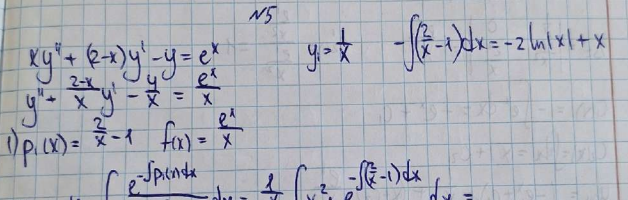 №5
xy'' + (2-x)y' - y = e^x
y₁ = 1/x
-∫(2/x - 1)dx = -2 ln|x| + x
y'' + (2-x)/x y' - y/x = e^x/x
1) p₁(x) = 2/x - 1 f(x) = e^x/x
∫ e^(-∫p₁(x)dx) dx = 1/x ∫ x² · e^(-∫(2/x - 1)dx) dx =